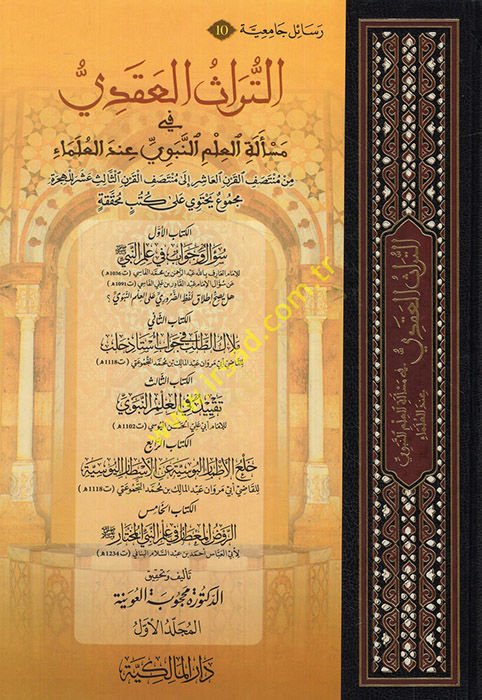 رسائل جامعية 10
التراث العقدي
في
مسألة العلم النبوي عند العلماء
من منتصف القرن العاشر إلى منتصف القرن الثالث عشر للهجرة
مجموع يحتوي على كتب محققة
الكتاب الأول
سؤال وجواب في علم النبي ﷺ
للإمام العارف بالله عبد الرحمن بن محمد الفاسي (ت1036هـ)
عن سؤال الإمام عبد القادر بن علي الفاسي (ت1091هـ)
هل يصح إطلاق لفظ الضروري على العلم النبوي؟
الكتاب الثاني
ملاك الطلب في جواب أستاذ حلب
للقاضي أبي مروان عبد الملك بن محمد التجموعتي (ت1118هـ)
الكتاب الثالث
تقييد في العلم النبوي
للإمام أبي علي الحسن اليوسي (ت1102هـ)
الكتاب الرابع
خلع الأطمار البوسية عن الأسطار اليوسية
للقاضي أبي مروان عبد الملك بن محمد التجموعتي (ت1118هـ)
الكتاب الخامس
الروض المعطار في علم النبي المختار ﷺ
لأبي العباس أحمد بن عبد السلام البناني (ت1234هـ)
تأليف وتحقيق
الدكتورة محجوبة العوينة
المجلد الأول
دار المالكية
التراث العقدي
في مسألة العلم النبوي
عند العلماء